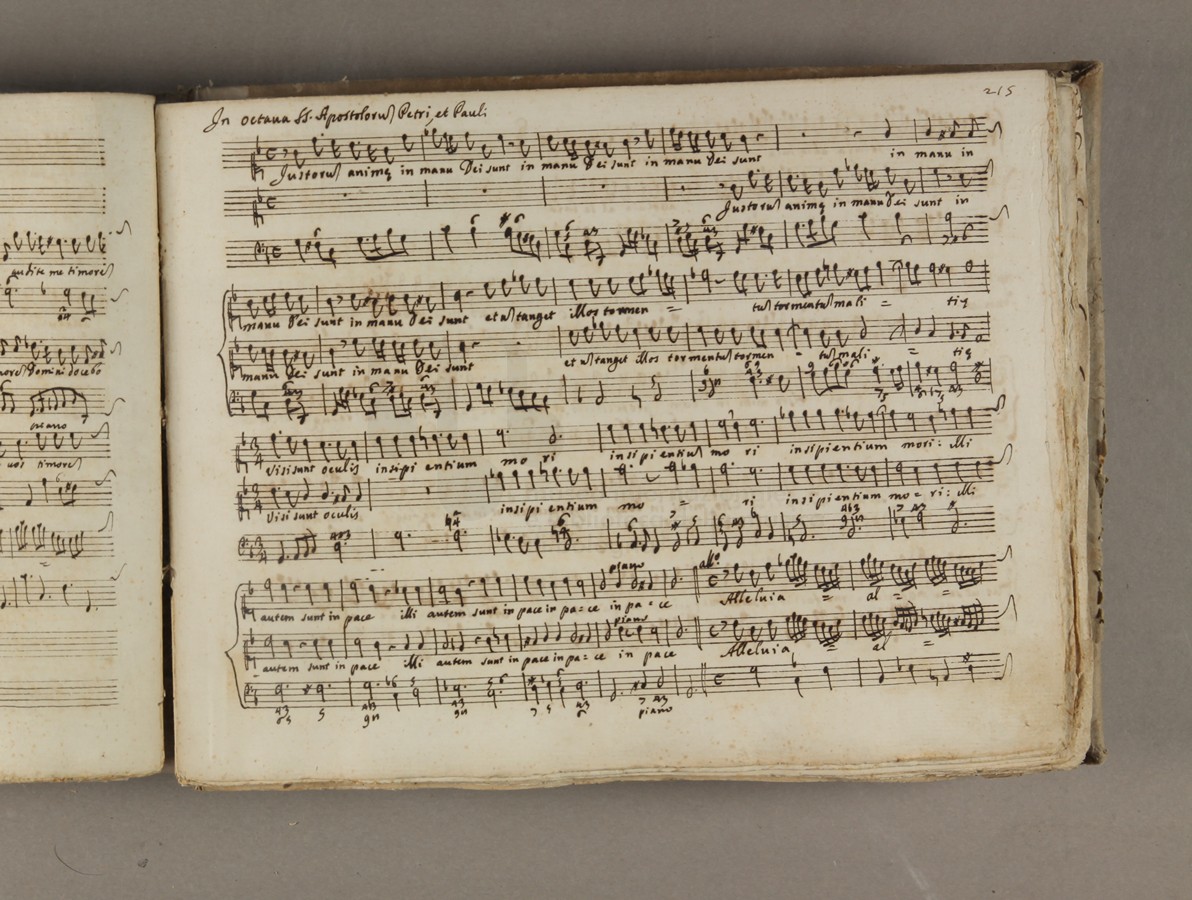 215
In octava SS. Apostoloru Petri et Pauli
Justoru animę in manu Dei sunt in manu Dei sunt in manu Dei sunt in manu in
Justoru animę in manu Dei sunt in
manu Dei sunt in manu Dei sunt et nō tanget illos tormen = tu tormentu mali = tię
manu Dei sunt in manu Dei sunt et nō tanget illos tormentu tormen - tu mali = tię
Visi sunt oculis insipi entium mo ri insipientiu mo ri insipientium mori: Illi
Visi sunt oculis insipi entium mo = ri insipientium mo = ri: Illi
piano allo.
autem sunt in pace illi autem sunt in pace in pa = ce in pa = ce Alleluia = al = =
piano
autem sunt in pace illi autem sunt in pace in pa = ce in pace Alleluia = al =
piano
audite me timore
more Domini docebo
piano
vos timore